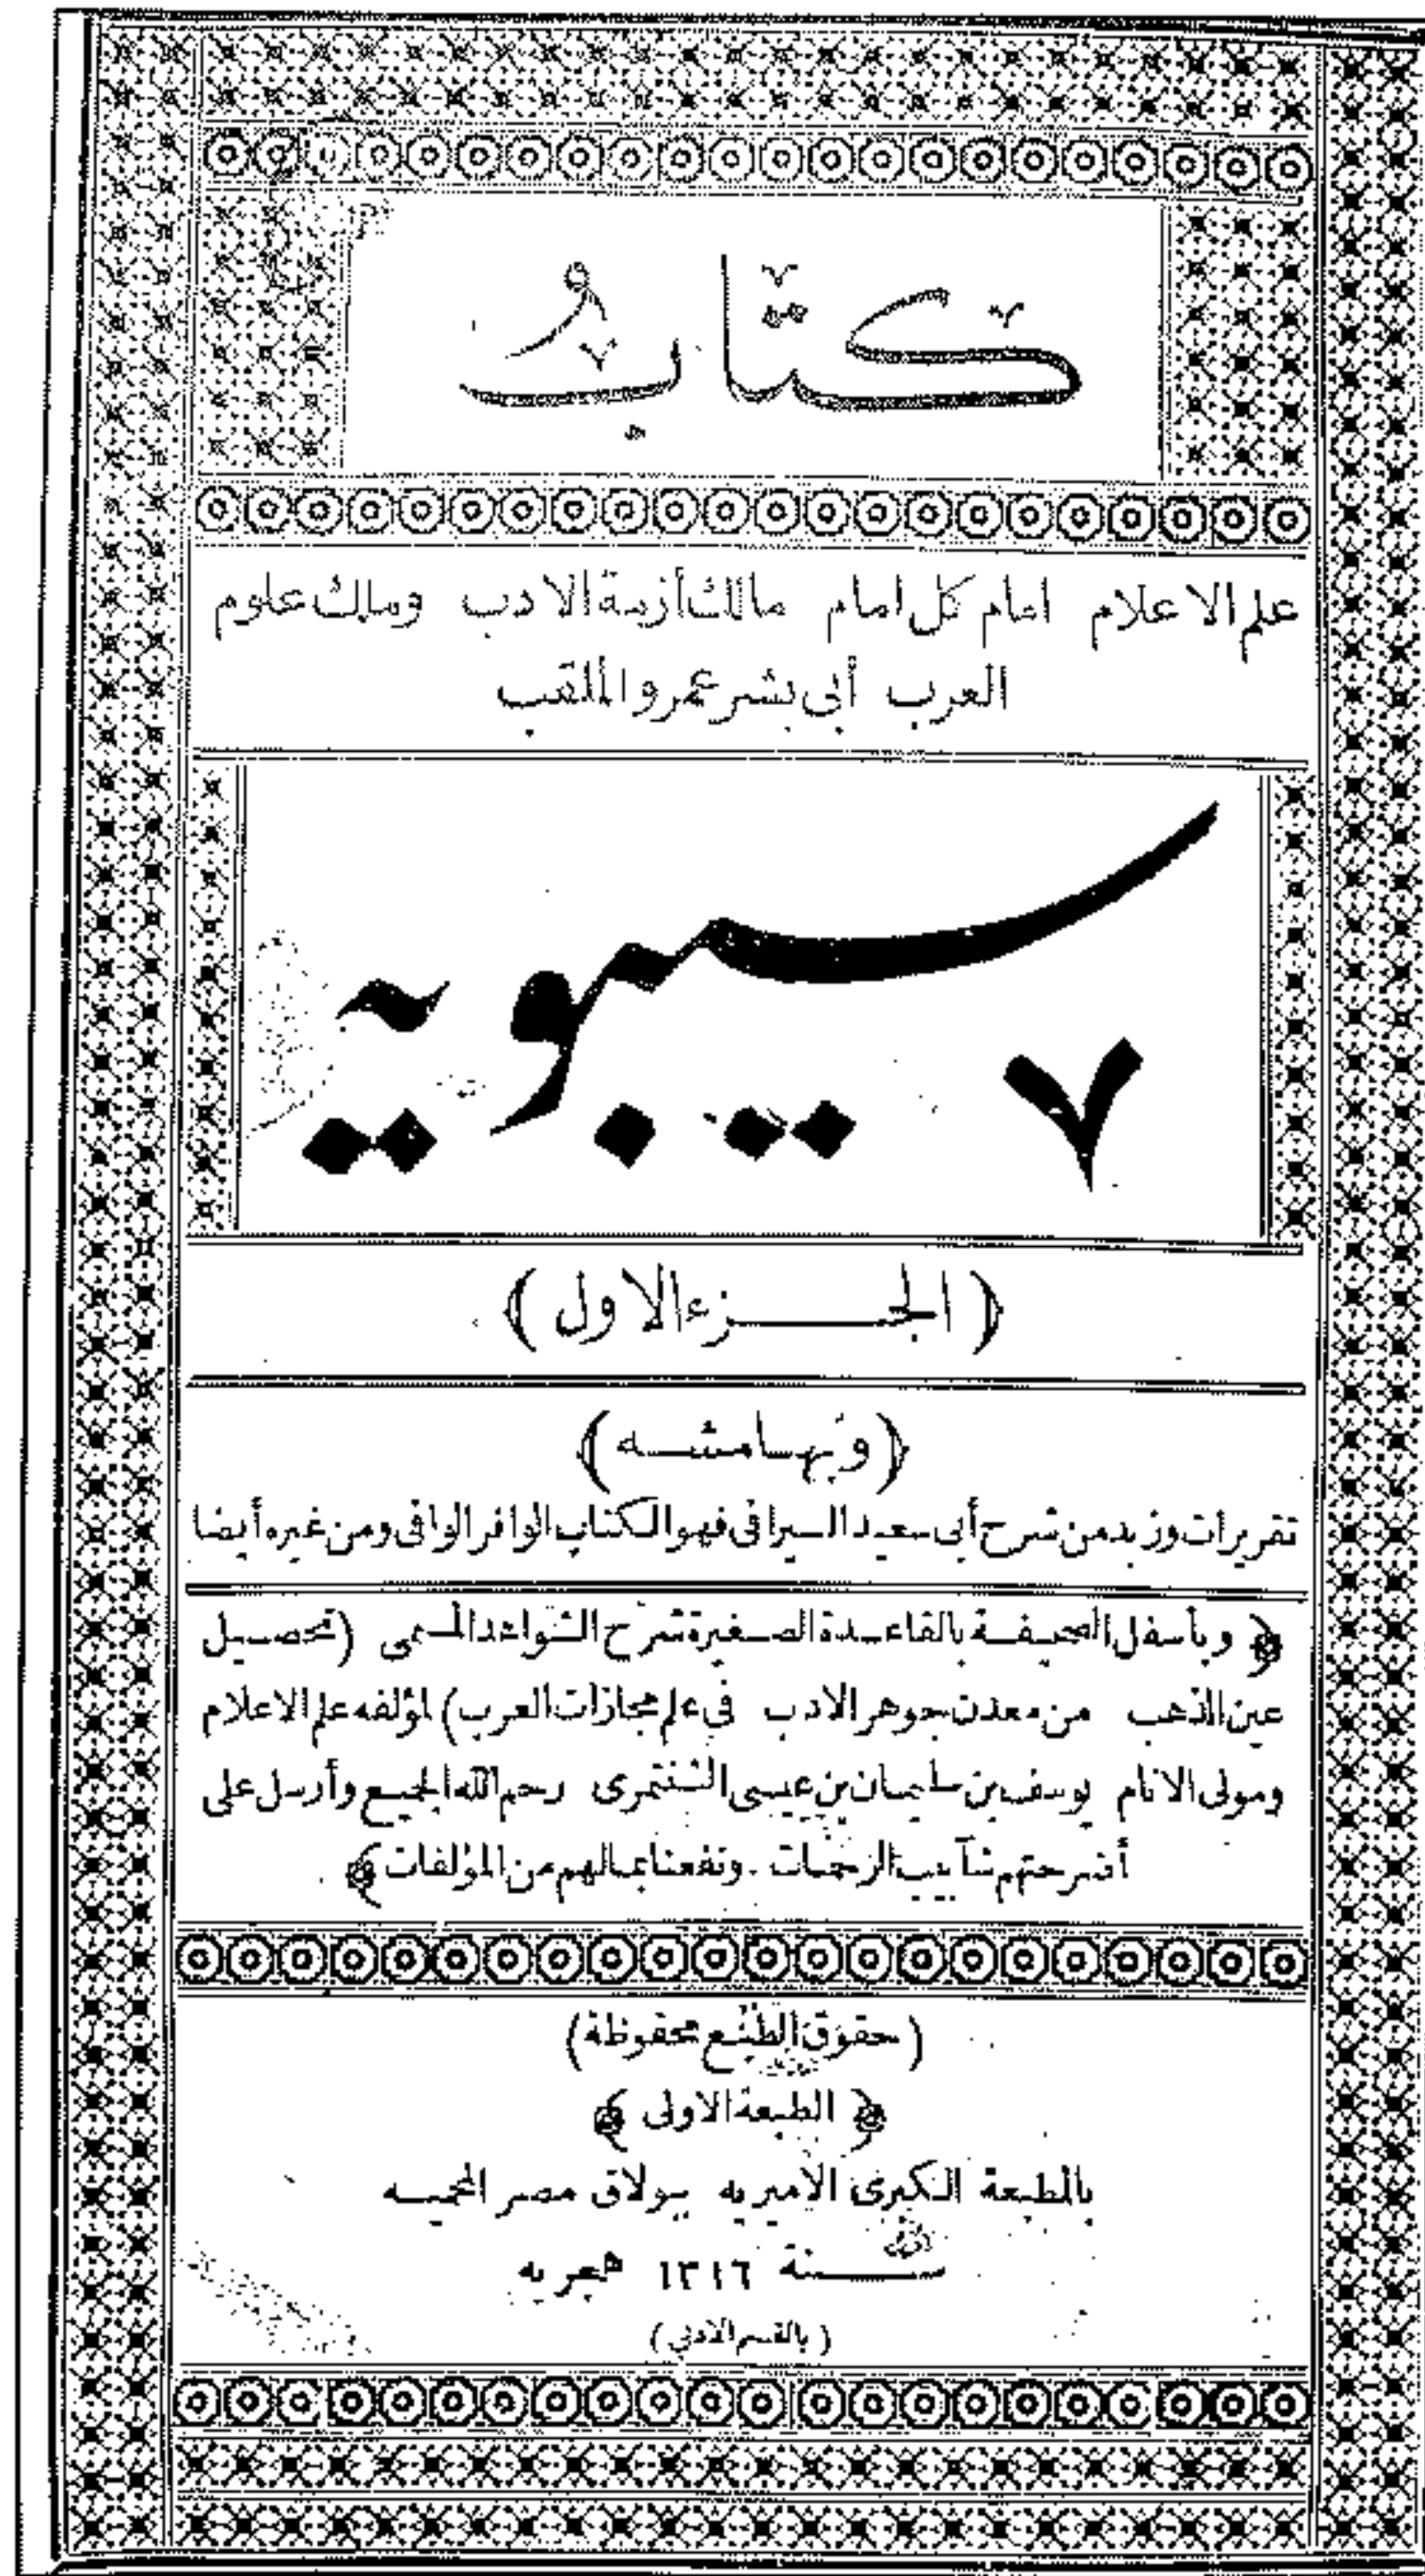 كتابُ
علم الاعلام امام كل امام مالك أزمة الادب ومالك علوم
العرب أبى بشر عمرو الملقب
سيبويه
(الجزء الاول)
(وبهامشه)
تقريرات وزبد من شرح أبى سعيد السيرافى فهو الكتاب الوافر الوافى ومن غيره أيضا
﴿وبأسفل الصحيفة بالقاعدة الصغيرة شرح الشواهد المسمى (تحصيل
عين الذهب من معدن جوهر الادب فى علم مجازات العرب) لمؤلفه علم الاعلام
ومولى الانام يوسف بن سليمان بن عيسى الشنتمرى رحم الله الجميع وأرسل على
أضرحتهم شآبيب الرحمات ونفعنا بمالهم من المؤلفات﴾
(حقوق الطبع محفوظة)
﴿الطبعة الاولى﴾
بالمطبعة الكبرى الاميريه ببولاق مصر المحميه
سنة ١٣١٦ هجريه
(بالقسم الادبى)